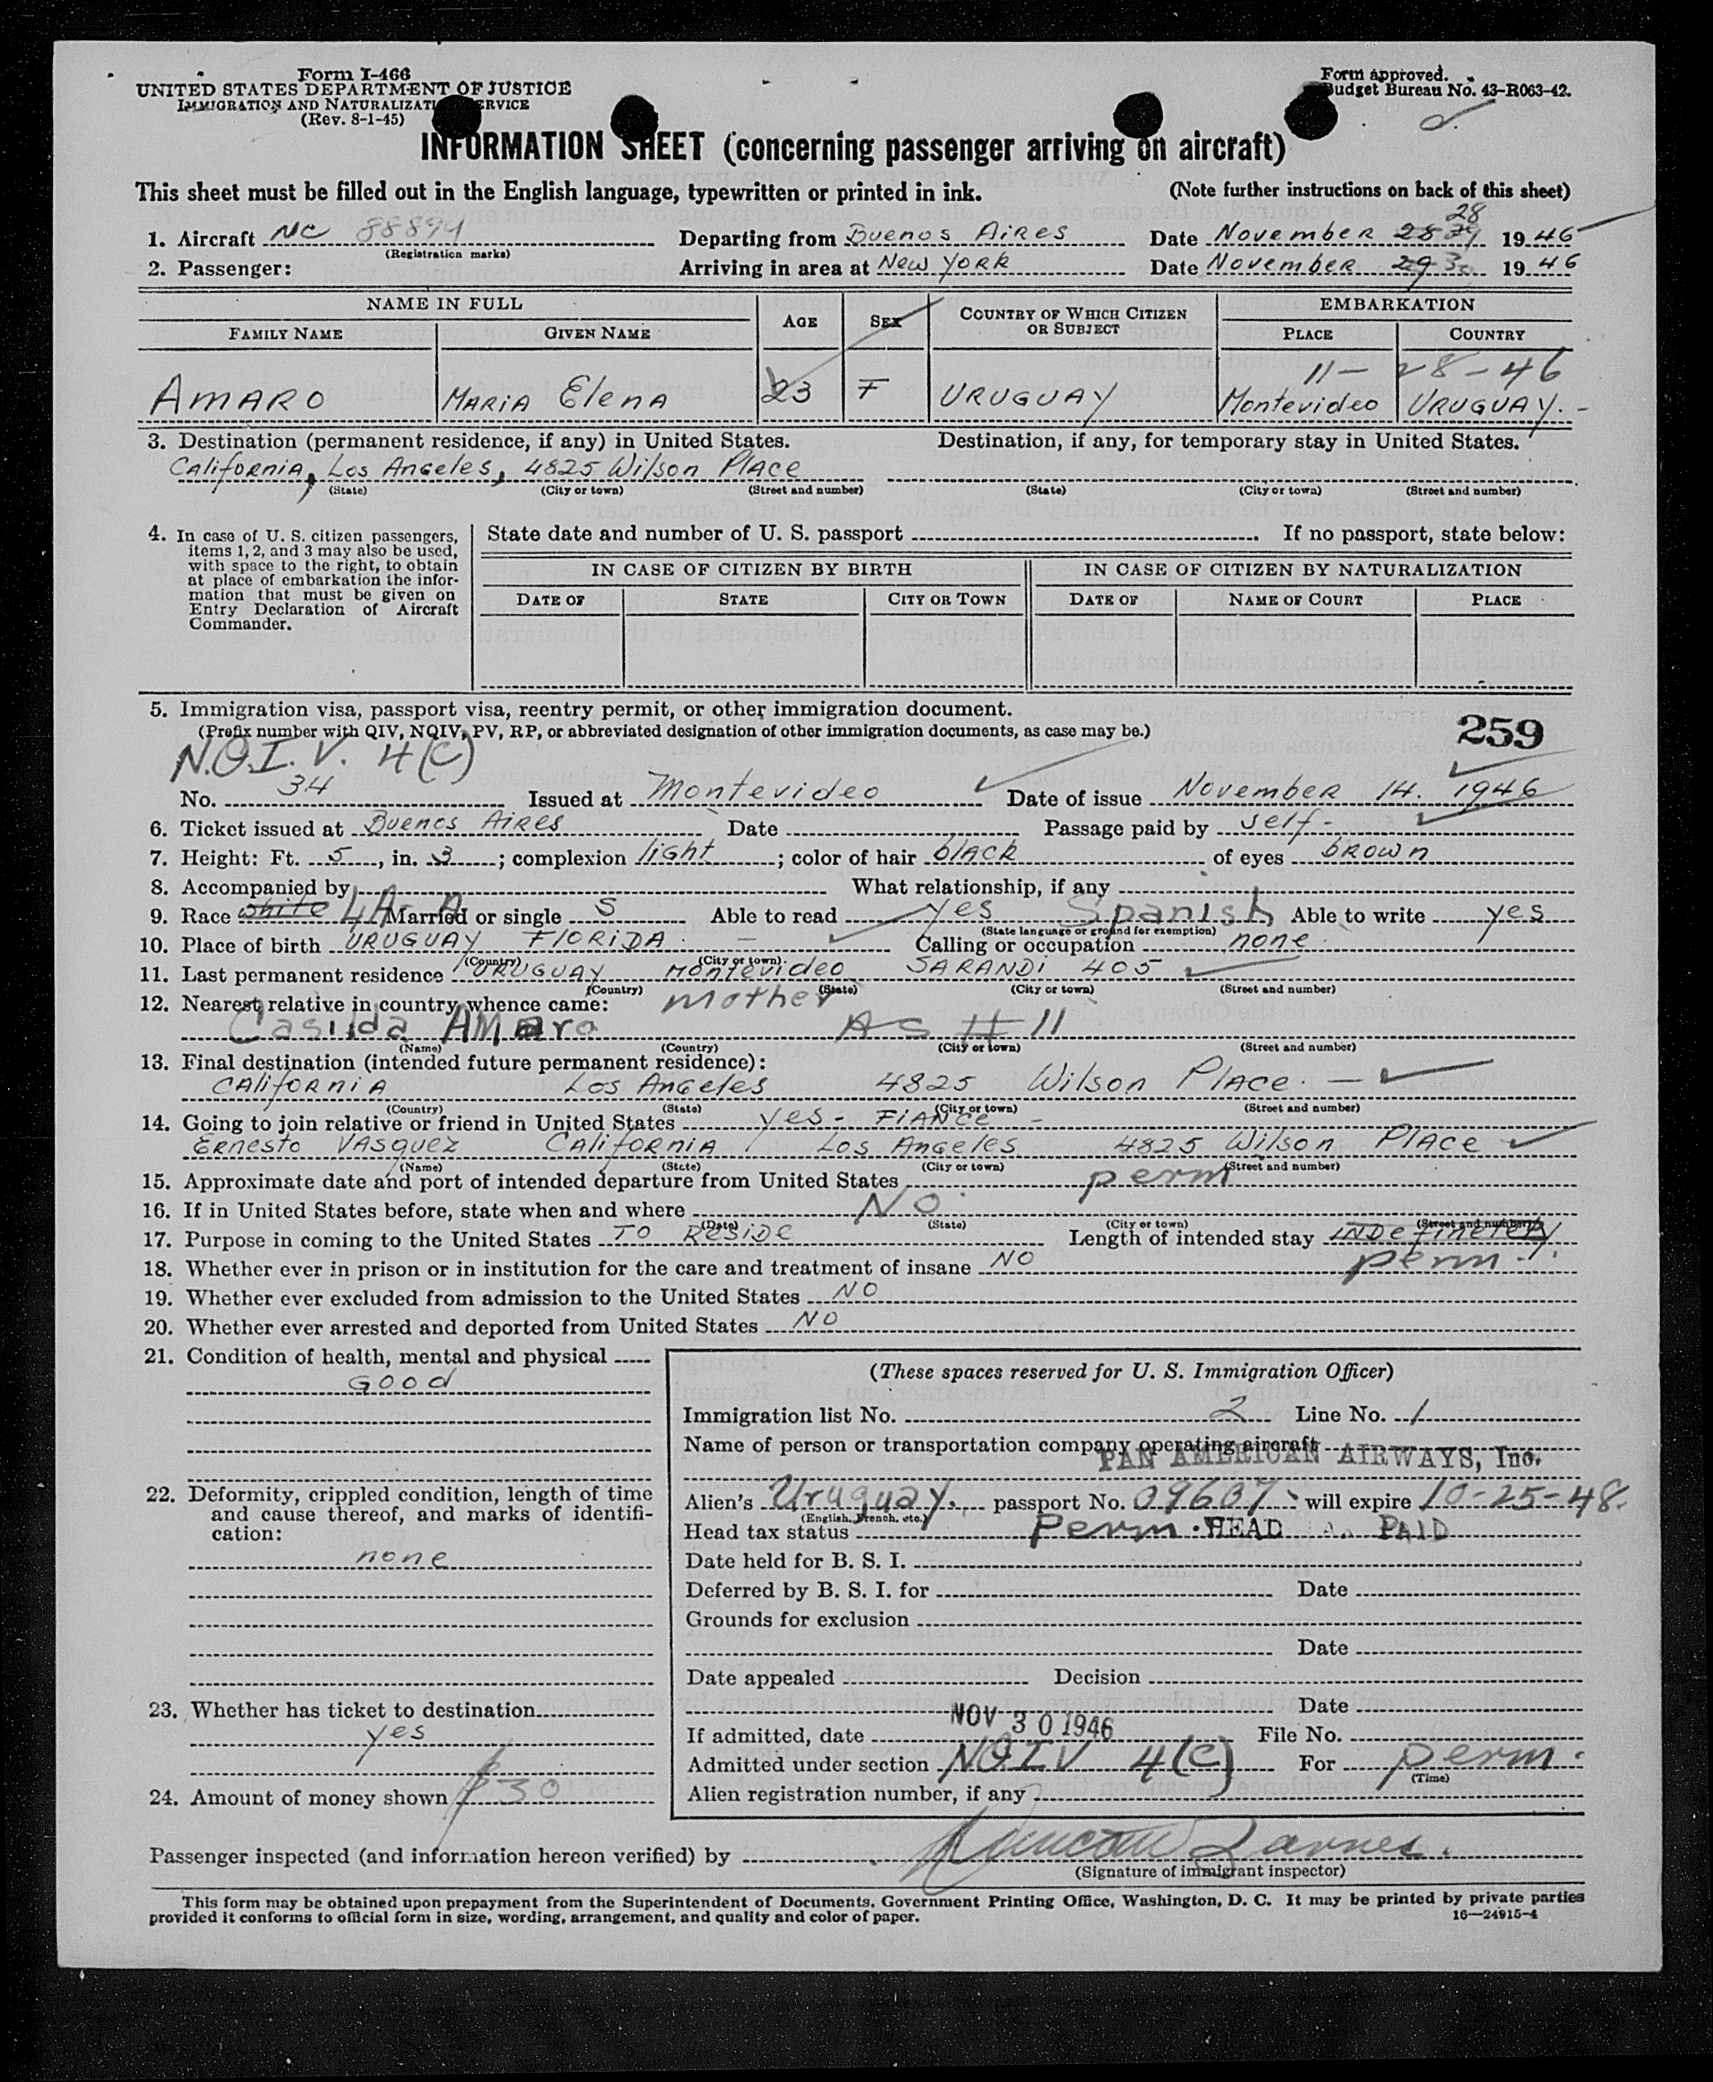 Form I-466
UNITED STATES DEPARTMENT OF JUSTICE
IMMIGRATION AND NATURALIZATION SERVICE
(Rev. 8-1-45)
Form approved.
Budget Bureau No. 43-R063-42.
INFORMATION SHEET (concerning passenger arriving on aircraft)
This sheet must be filled out in the English language, typewritten or printed in ink. (Note further instructions on back of this sheet)
28
1. Aircraft NC 88894 Departing from Buenos Aires Date November 28 1946
(Registration marks)
2. Passenger: Arriving in area at New York Date November 29 30 1946
NAME IN FULL AGE SEX COUNTRY OF WHICH CITIZEN OR SUBJECT EMBARKATION
FAMILY NAME GIVEN NAME PLACE COUNTRY
11-28-46
AMARO MARIA Elena 23 F URUGUAY Montevideo URUGUAY.-
3. Destination (permanent residence, if any) in United States. Destination, if any, for temporary stay in United States.
California, Los Angeles, 4825 Wilson Place
(State) (City or town) (Street and number) (State) (City or town) (Street and number)
4. In case of U. S. citizen passengers, items 1, 2, and 3 may also be used, with space to the right, to obtain at place of embarkation the information that must be given on Entry Declaration of Aircraft Commander.
State date and number of U. S. passport If no passport, state below:
IN CASE OF CITIZEN BY BIRTH IN CASE OF CITIZEN BY NATURALIZATION
DATE OF STATE CITY OR TOWN DATE OF NAME OF COURT PLACE
5. Immigration visa, passport visa, reentry permit, or other immigration document.
(Prefix number with QIV, NQIV, PV, RP, or abbreviated designation of other immigration documents, as case may be.)
259
N.Q.I.V. 4(C)
No. 34 Issued at Montevideo Date of issue November 14. 1946
6. Ticket issued at Buenos Aires Date Passage paid by self-
7. Height: Ft. 5, in. 3; complexion light; color of hair black of eyes brown
8. Accompanied by What relationship, if any
9. Race white LA-A Married or single S Able to read yes Spanish Able to write yes
(State language or ground for exemption)
10. Place of birth URUGUAY FLORIDA - Calling or occupation none
(Country) (City or town)
11. Last permanent residence URUGUAY Montevideo SARANDI 405
(Country) (State) (City or town) (Street and number)
12. Nearest relative in country whence came: mother
Casilda Amaro AS # 11
(Name) (Country) (City or town) (Street and number)
13. Final destination (intended future permanent residence):
California Los Angeles 4825 Wilson Place. -
(Country) (State) (City or town) (Street and number)
14. Going to join relative or friend in United States yes - FIANCE -
Ernesto Vasquez California Los Angeles 4825 Wilson Place
(Name) (State) (City or town) (Street and number)
15. Approximate date and port of intended departure from United States perm
16. If in United States before, state when and where No
(Date) (State) (City or town) (Street and number)
17. Purpose in coming to the United States To Reside Length of intended stay INDefinetely
perm.
18. Whether ever in prison or in institution for the care and treatment of insane NO
19. Whether ever excluded from admission to the United States NO
20. Whether ever arrested and deported from United States NO
21. Condition of health, mental and physical
Good
22. Deformity, crippled condition, length of time and cause thereof, and marks of identification:
none
23. Whether has ticket to destination
yes
24. Amount of money shown $30
(These spaces reserved for U. S. Immigration Officer)
Immigration list No. 2 Line No. 1
Name of person or transportation company operating aircraft
PAN AMERICAN AIRWAYS, Inc.
Alien's Uruguay. passport No. 09607 will expire 10-25-48.
(English, French, etc.)
Head tax status Perm. HEAD PAID
Date held for B. S. I.
Deferred by B. S. I. for Date
Grounds for exclusion
Date
Date appealed Decision
Date
If admitted, date NOV 30 1946 File No.
Admitted under section N.Q.I.V 4(C) For perm.
(Time)
Alien registration number, if any
Passenger inspected (and information hereon verified) by
(Signature of immigrant inspector)
This form may be obtained upon prepayment from the Superintendent of Documents, Government Printing Office, Washington, D. C. It may be printed by private parties
provided it conforms to official form in size, wording, arrangement, and quality and color of paper. 16—24915-4